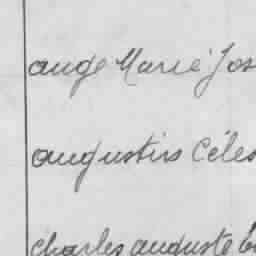 ange Marie Jos
augustin Céles
charles auguste